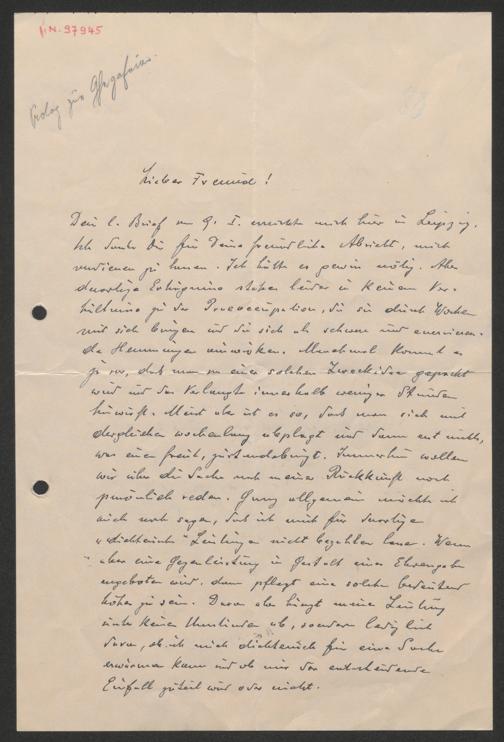 I.N. 97945
Prolog zur
Lieber Freund!
Dein l. Brief vom 9. I. erreichte mich hier in Leipzig.
Ich danke Dir für Deine freundliche Absicht, mich
verdienen zu lassen. Ich hätte es gewiss nötig. Aber
derartige Erträgnisse stehen leider in keinem Ver-
hältnis zu der Praeoccupation, die sie durch Wochen
mit sich bringen und die sich als schwere und enervieren-
de Hemmungen auswirken. Manchmal kommt es
ja vor, dass man von einer solchen Zweckidee gepackt
wird und das Verlangte innerhalb weniger Stunden
hinwirft. Meist aber ist es so, dass man sich mit
dergleichen wochenlang abplagt und dann erst nichts,
was einen freut, zustandebringt. Immerhin wollen
wir über die Sache nach meiner Rückkunft noch
persönlich reden. Ganz allgemein möchte ich
auch noch sagen, dass ich mich für derartige
„dichterische" Leistungen nicht bezahlen lasse. Wenn
aber eine Gegenleistung in Gestalt einer Ehrengabe
angeboten wird, dann pflegt eine solche bedeutend
höher zu sein. Davon aber hängt meine Leistung
unter keinen Umständen ab, sondern lediglich
davon, ob ich mich dichterisch für eine Sache
erwärmen kann und ob mir der entscheidende
Einfall zuteil wird oder nicht.